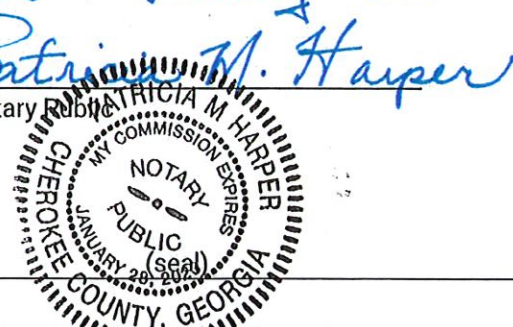 Patricia M. Harper
Notary Public
PATRICIA M HARPER
MY COMMISSION EXPIRES
NOTARY
PUBLIC
(seal)
JANUARY 28,
CHEROKEE COUNTY, GEORGIA